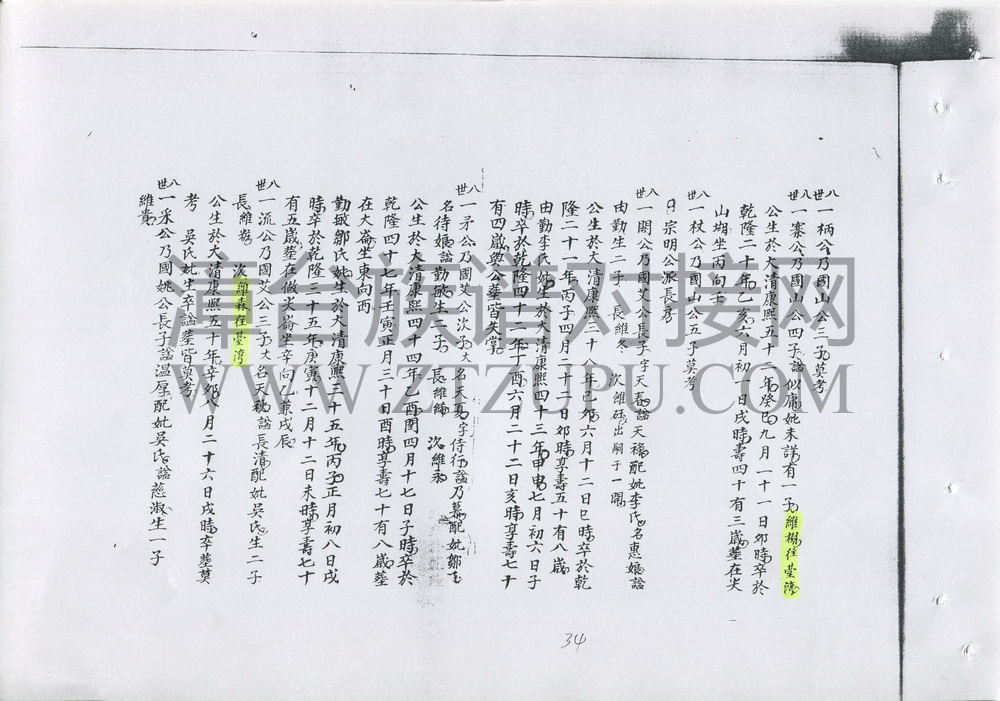 八世一柄公乃國山公三子莫考
八世一寨公乃國山公四子諡似庸妣未詳有一子維樹往臺湾
公生於大清康熙五十二年癸巳九月一十一日卯時卒於
乾隆二十年乙亥六月初一日戌時壽四十有三歲塟在尖
山坳坐丙向壬
八世一杖公乃國山公五子莫考
宗明公派長房
八世一閣公乃國艾公長子字天春諡天穆配妣李氏名惠娘諡
由勤生二子 長維冬 次維砡出嗣于一閣
公生於大清康熙三十八年己卯六月十二日巳時卒於乾
隆二十一年丙子四月二十二日卯時享壽五十有八歲
由勤李氏妣生於大清康熙四十三年甲申七月初六日子
時卒於乾隆四十二年丁酉六月二十二日亥時享壽七十
有四歲與公塟皆失掌
八世一矛公乃國艾公次子大名天夏字侍行諡乃慕配妣鄒氏
名待娘諡勤敏生二子 長維綿 次維永
公生於大清康熙四十四年乙酉閏四月十七日子時卒於
乾隆四十七年壬寅正月三十日酉時享壽七十有八歲塟
在大崙坐東向西
勤敏鄒氏妣生於大清康熙三十五年丙子正月初八日戌
時卒於乾隆三十五年庚寅十二月十二日未時享壽七十
有五歲塟在做火崙坐辛向乙兼戌辰
八世一流公乃國艾公三子大名天秘諡長清配妣吳氏生二子
長維 次維森往臺湾
公生於大清康熙五十年辛卯八月二十六日戌時卒塟莫
考 吳氏妣生卒諡塟皆莫考
八世一采公乃國姚公長子諡温厚配妣吳氏諡慈淑生一子
維貴
34
滇台族谱对接网
WWW.ZTZUPU.COM